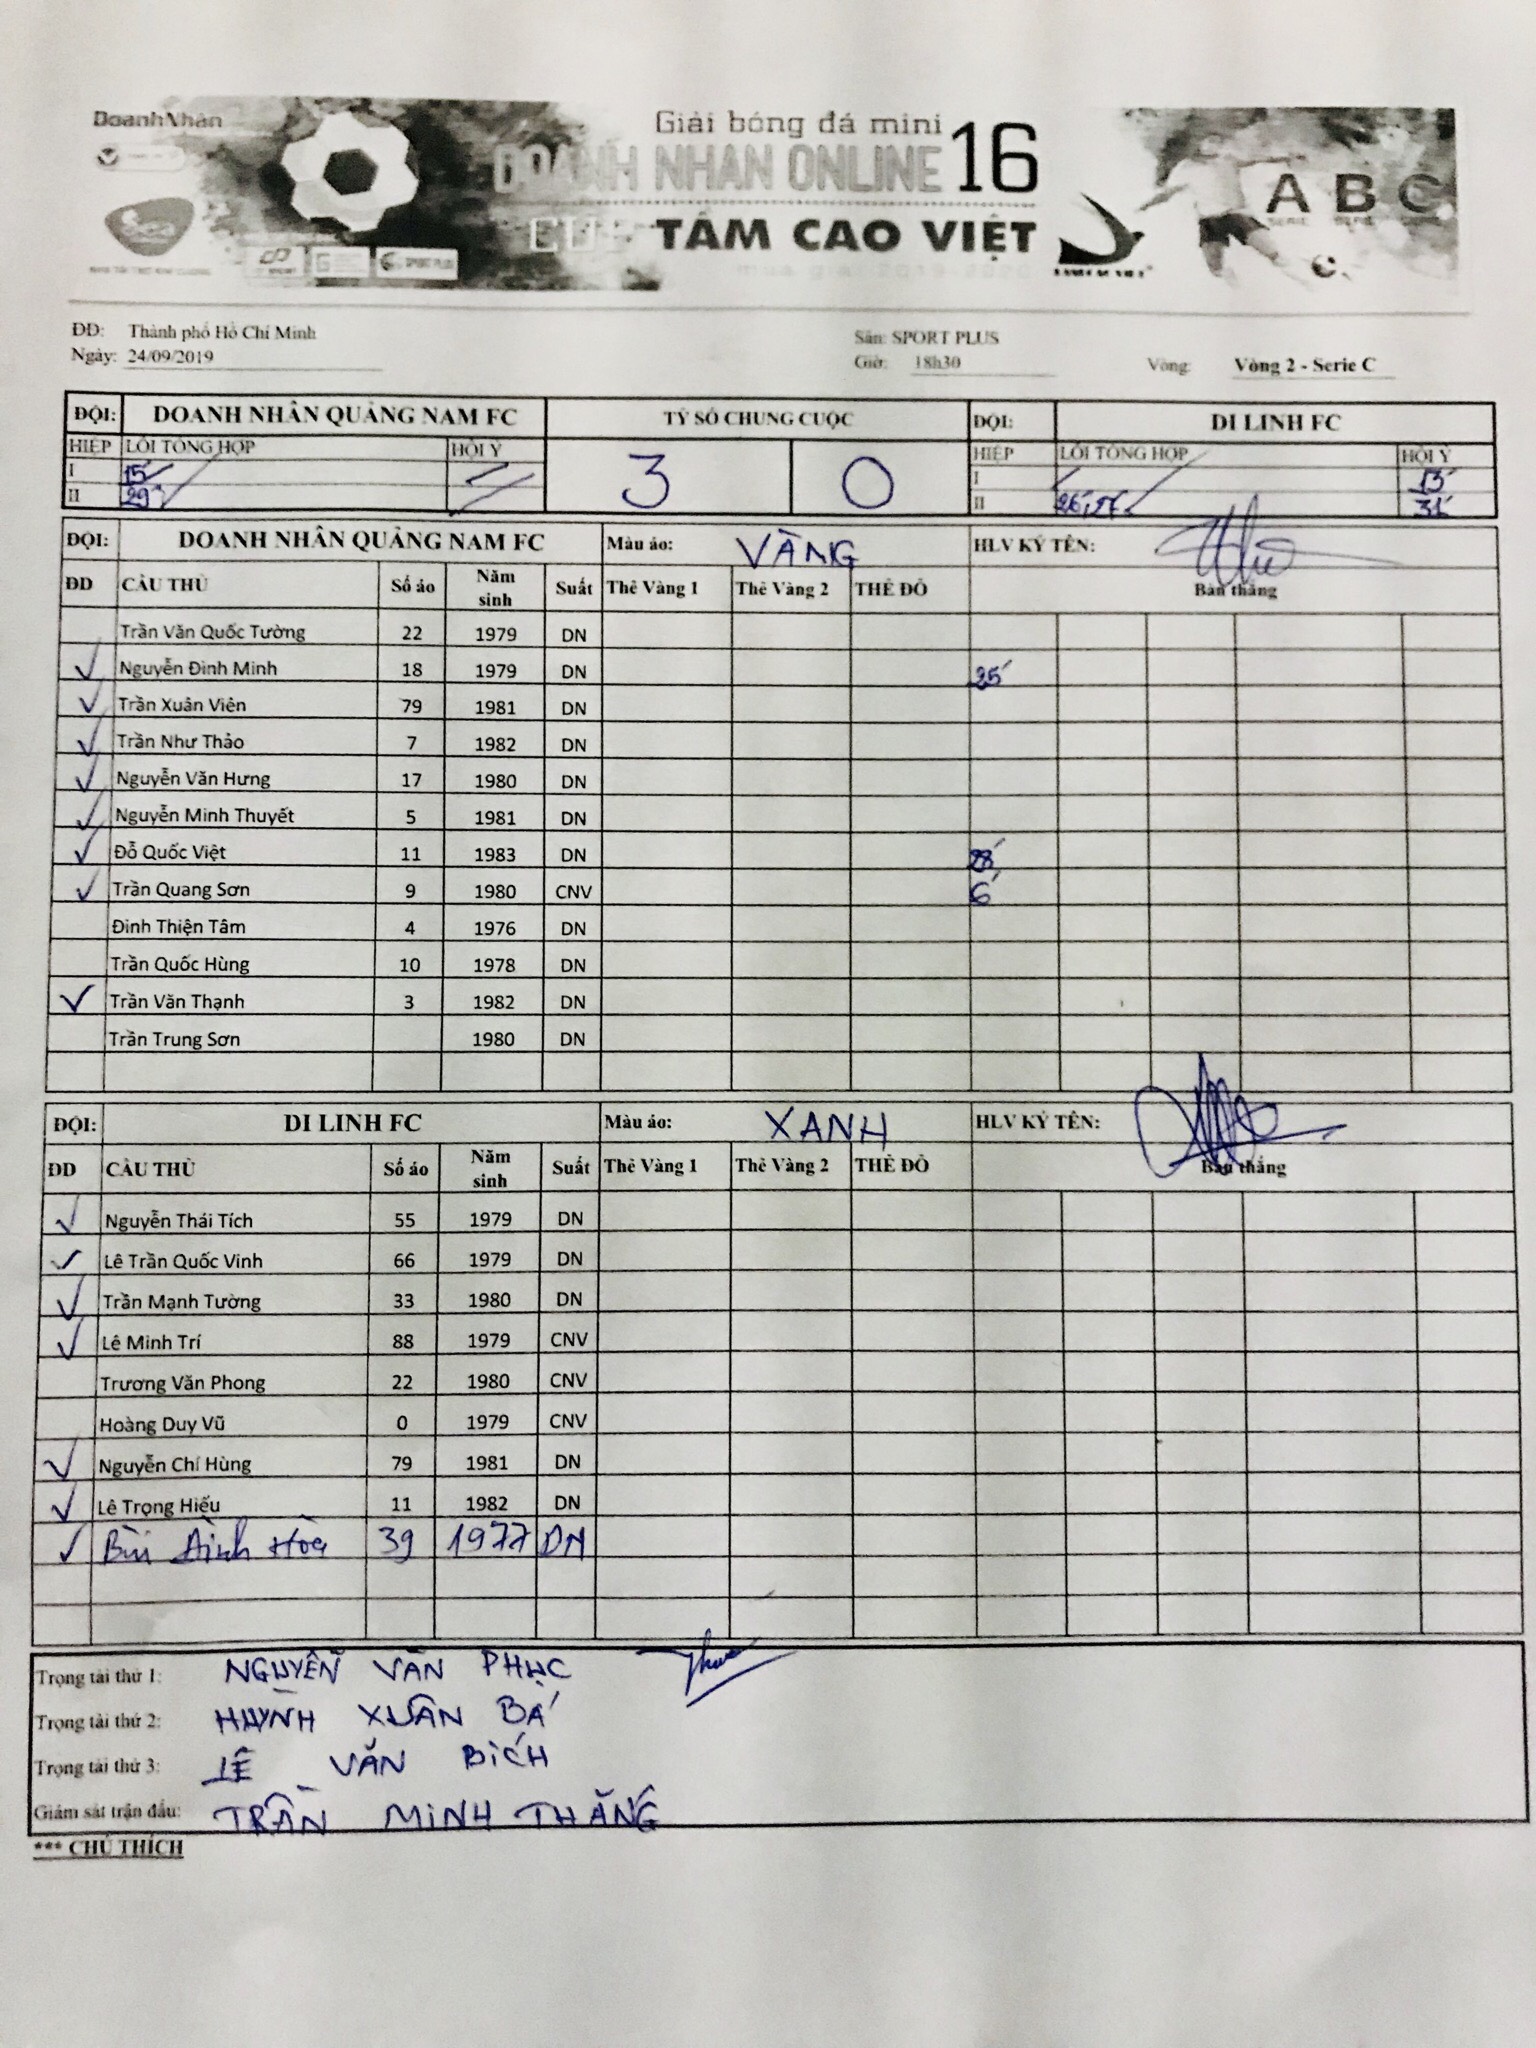 DoanhNhân
Giải bóng đá mini
DOANH NHAN ONLINE 16
CUP TẦM CAO VIỆT
A B C
SERIE SERIE
SPORT PLUS
ĐĐ: Thành phố Hồ Chí Minh Sân: SPORT PLUS
Ngày: 24/09/2019 Giờ: 18h30 Vòng: Vòng 2 - Serie C
ĐỘI: DOANH NHÂN QUẢNG NAM FC TỶ SỐ CHUNG CUỘC ĐỘI: DI LINH FC
HIỆP LỖI TỔNG HỢP HỘI Ý 3 0 HIỆP LỖI TỔNG HỢP HỘI Ý
I 15' I 13'
II 29' II 26', 27' 31'
ĐỘI: DOANH NHÂN QUẢNG NAM FC Màu áo: VÀNG HLV KÝ TÊN:
ĐD CẦU THỦ Số áo Năm sinh Suất Thẻ Vàng 1 Thẻ Vàng 2 THẺ ĐỎ Bàn thắng
Trần Văn Quốc Tường 22 1979 DN
✓ Nguyễn Đình Minh 18 1979 DN 25'
✓ Trần Xuân Viên 79 1981 DN
✓ Trần Như Thảo 7 1982 DN
✓ Nguyễn Văn Hưng 17 1980 DN
✓ Nguyễn Minh Thuyết 5 1981 DN
✓ Đỗ Quốc Việt 11 1983 DN 28'
✓ Trần Quang Sơn 9 1980 CNV 6'
Đinh Thiện Tâm 4 1976 DN
Trần Quốc Hùng 10 1978 DN
✓ Trần Văn Thạnh 3 1982 DN
Trần Trung Sơn 1980 DN
ĐỘI: DI LINH FC Màu áo: XANH HLV KÝ TÊN:
ĐD CẦU THỦ Số áo Năm sinh Suất Thẻ Vàng 1 Thẻ Vàng 2 THẺ ĐỎ Bàn thắng
✓ Nguyễn Thái Tích 55 1979 DN
✓ Lê Trần Quốc Vinh 66 1979 DN
✓ Trần Mạnh Tường 33 1980 DN
✓ Lê Minh Trí 88 1979 CNV
Trương Văn Phong 22 1980 CNV
Hoàng Duy Vũ 0 1979 CNV
✓ Nguyễn Chí Hùng 79 1981 DN
✓ Lê Trọng Hiếu 11 1982 DN
✓ Bùi Đình Hòa 39 1977 DN
Trọng tài thứ 1: NGUYỄN VĂN PHỤC
Trọng tài thứ 2: HUỲNH XUÂN BÁ
Trọng tài thứ 3: LÊ VĂN BÍCH
Giám sát trận đấu: TRẦN MINH THẮNG
*** CHÚ THÍCH